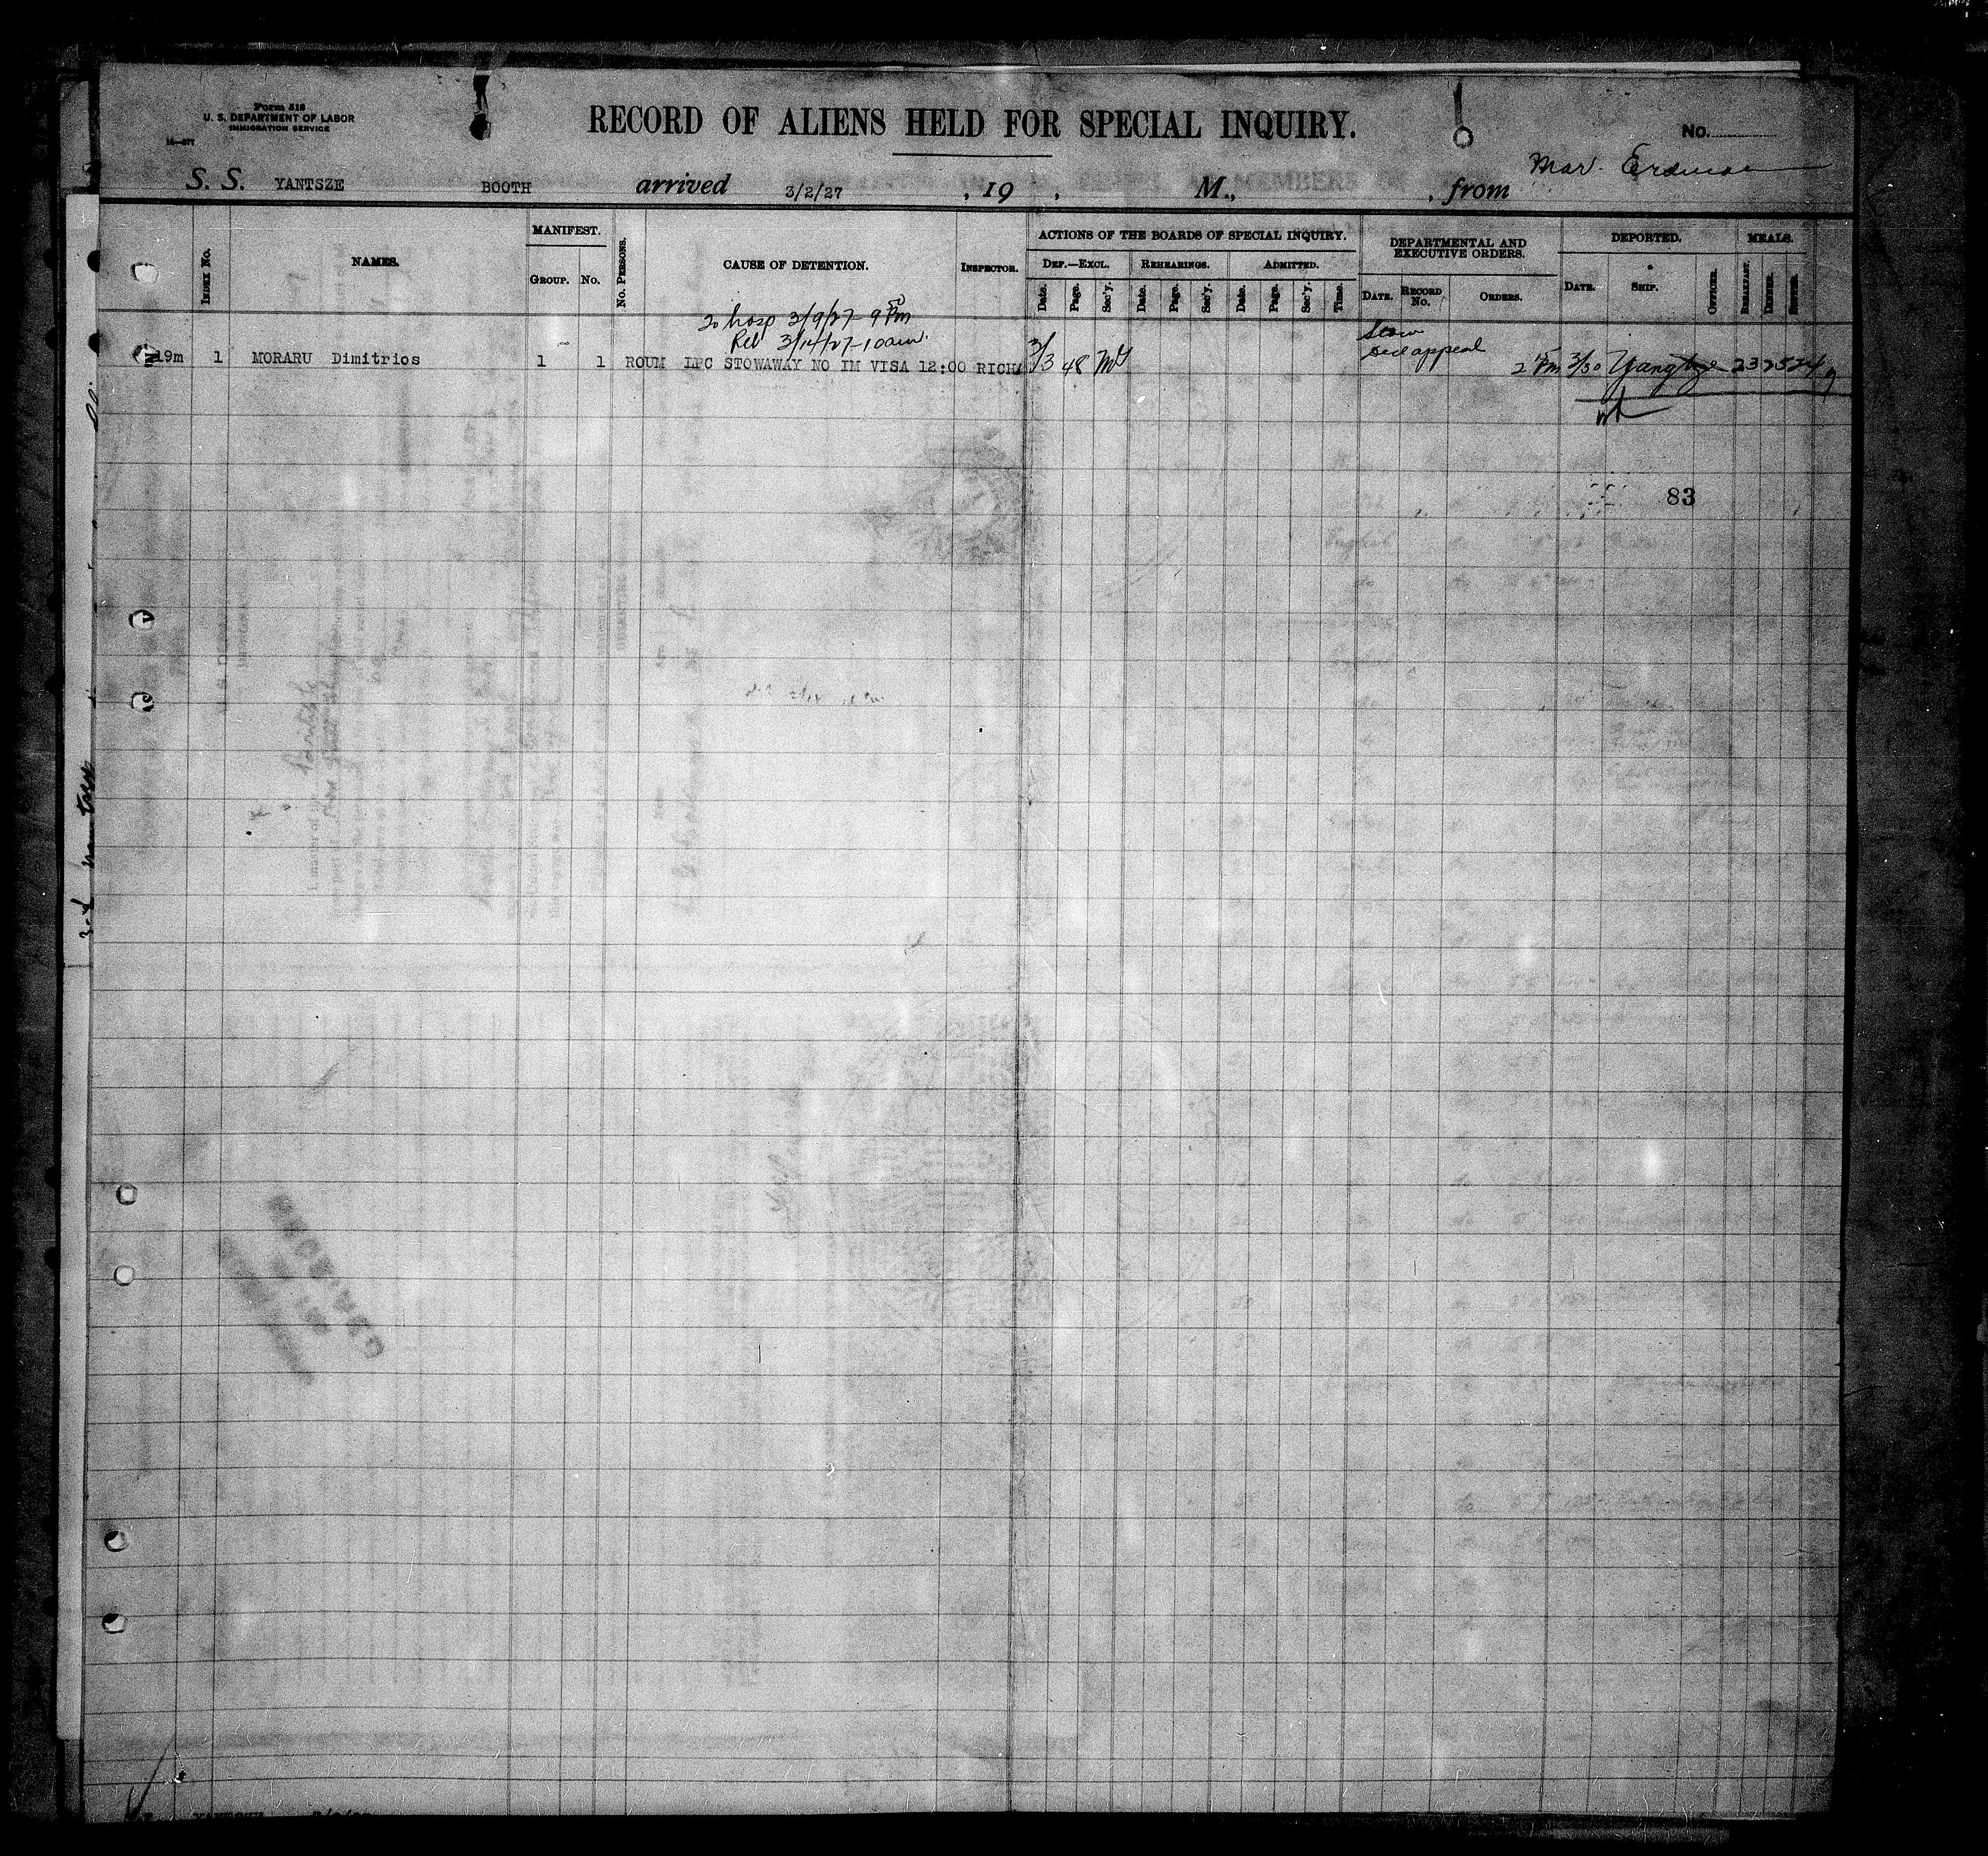 Form 518
U. S. DEPARTMENT OF LABOR
IMMIGRATION SERVICE
RECORD OF ALIENS HELD FOR SPECIAL INQUIRY.
No.
S. S. YANTSZE BOOTH arrived 3/2/27 , 19 , M., , from
MANIFEST.
ACTIONS OF THE BOARDS OF SPECIAL INQUIRY.
DEPARTMENTAL AND EXECUTIVE ORDERS.
DEPORTED.
MEALS.
INDEX No.
NAMES.
GROUP.
No.
No. PERSONS.
CAUSE OF DETENTION.
INSPECTOR.
DEF.—EXCL.
REHEARINGS.
ADMITTED.
Date. Page. Sec'y. Date. Page. Sec'y. Date. Page. Sec'y. Time.
DATE. RECORD No. ORDERS.
DATE. SHIP. OFFICER. BREAKFAST. DINNER. SUPPER.
To hosp 3/9/27 9 Pm
Rel 3/14/27 10am.
19m 1 MORARU Dimitrios 1 1 ROUM LPC STOWAWAY NO IM VISA 12:00 RICHA 3/3 48 appeal 2 15 Pm 3/30 Yangtze 23 25 24
83